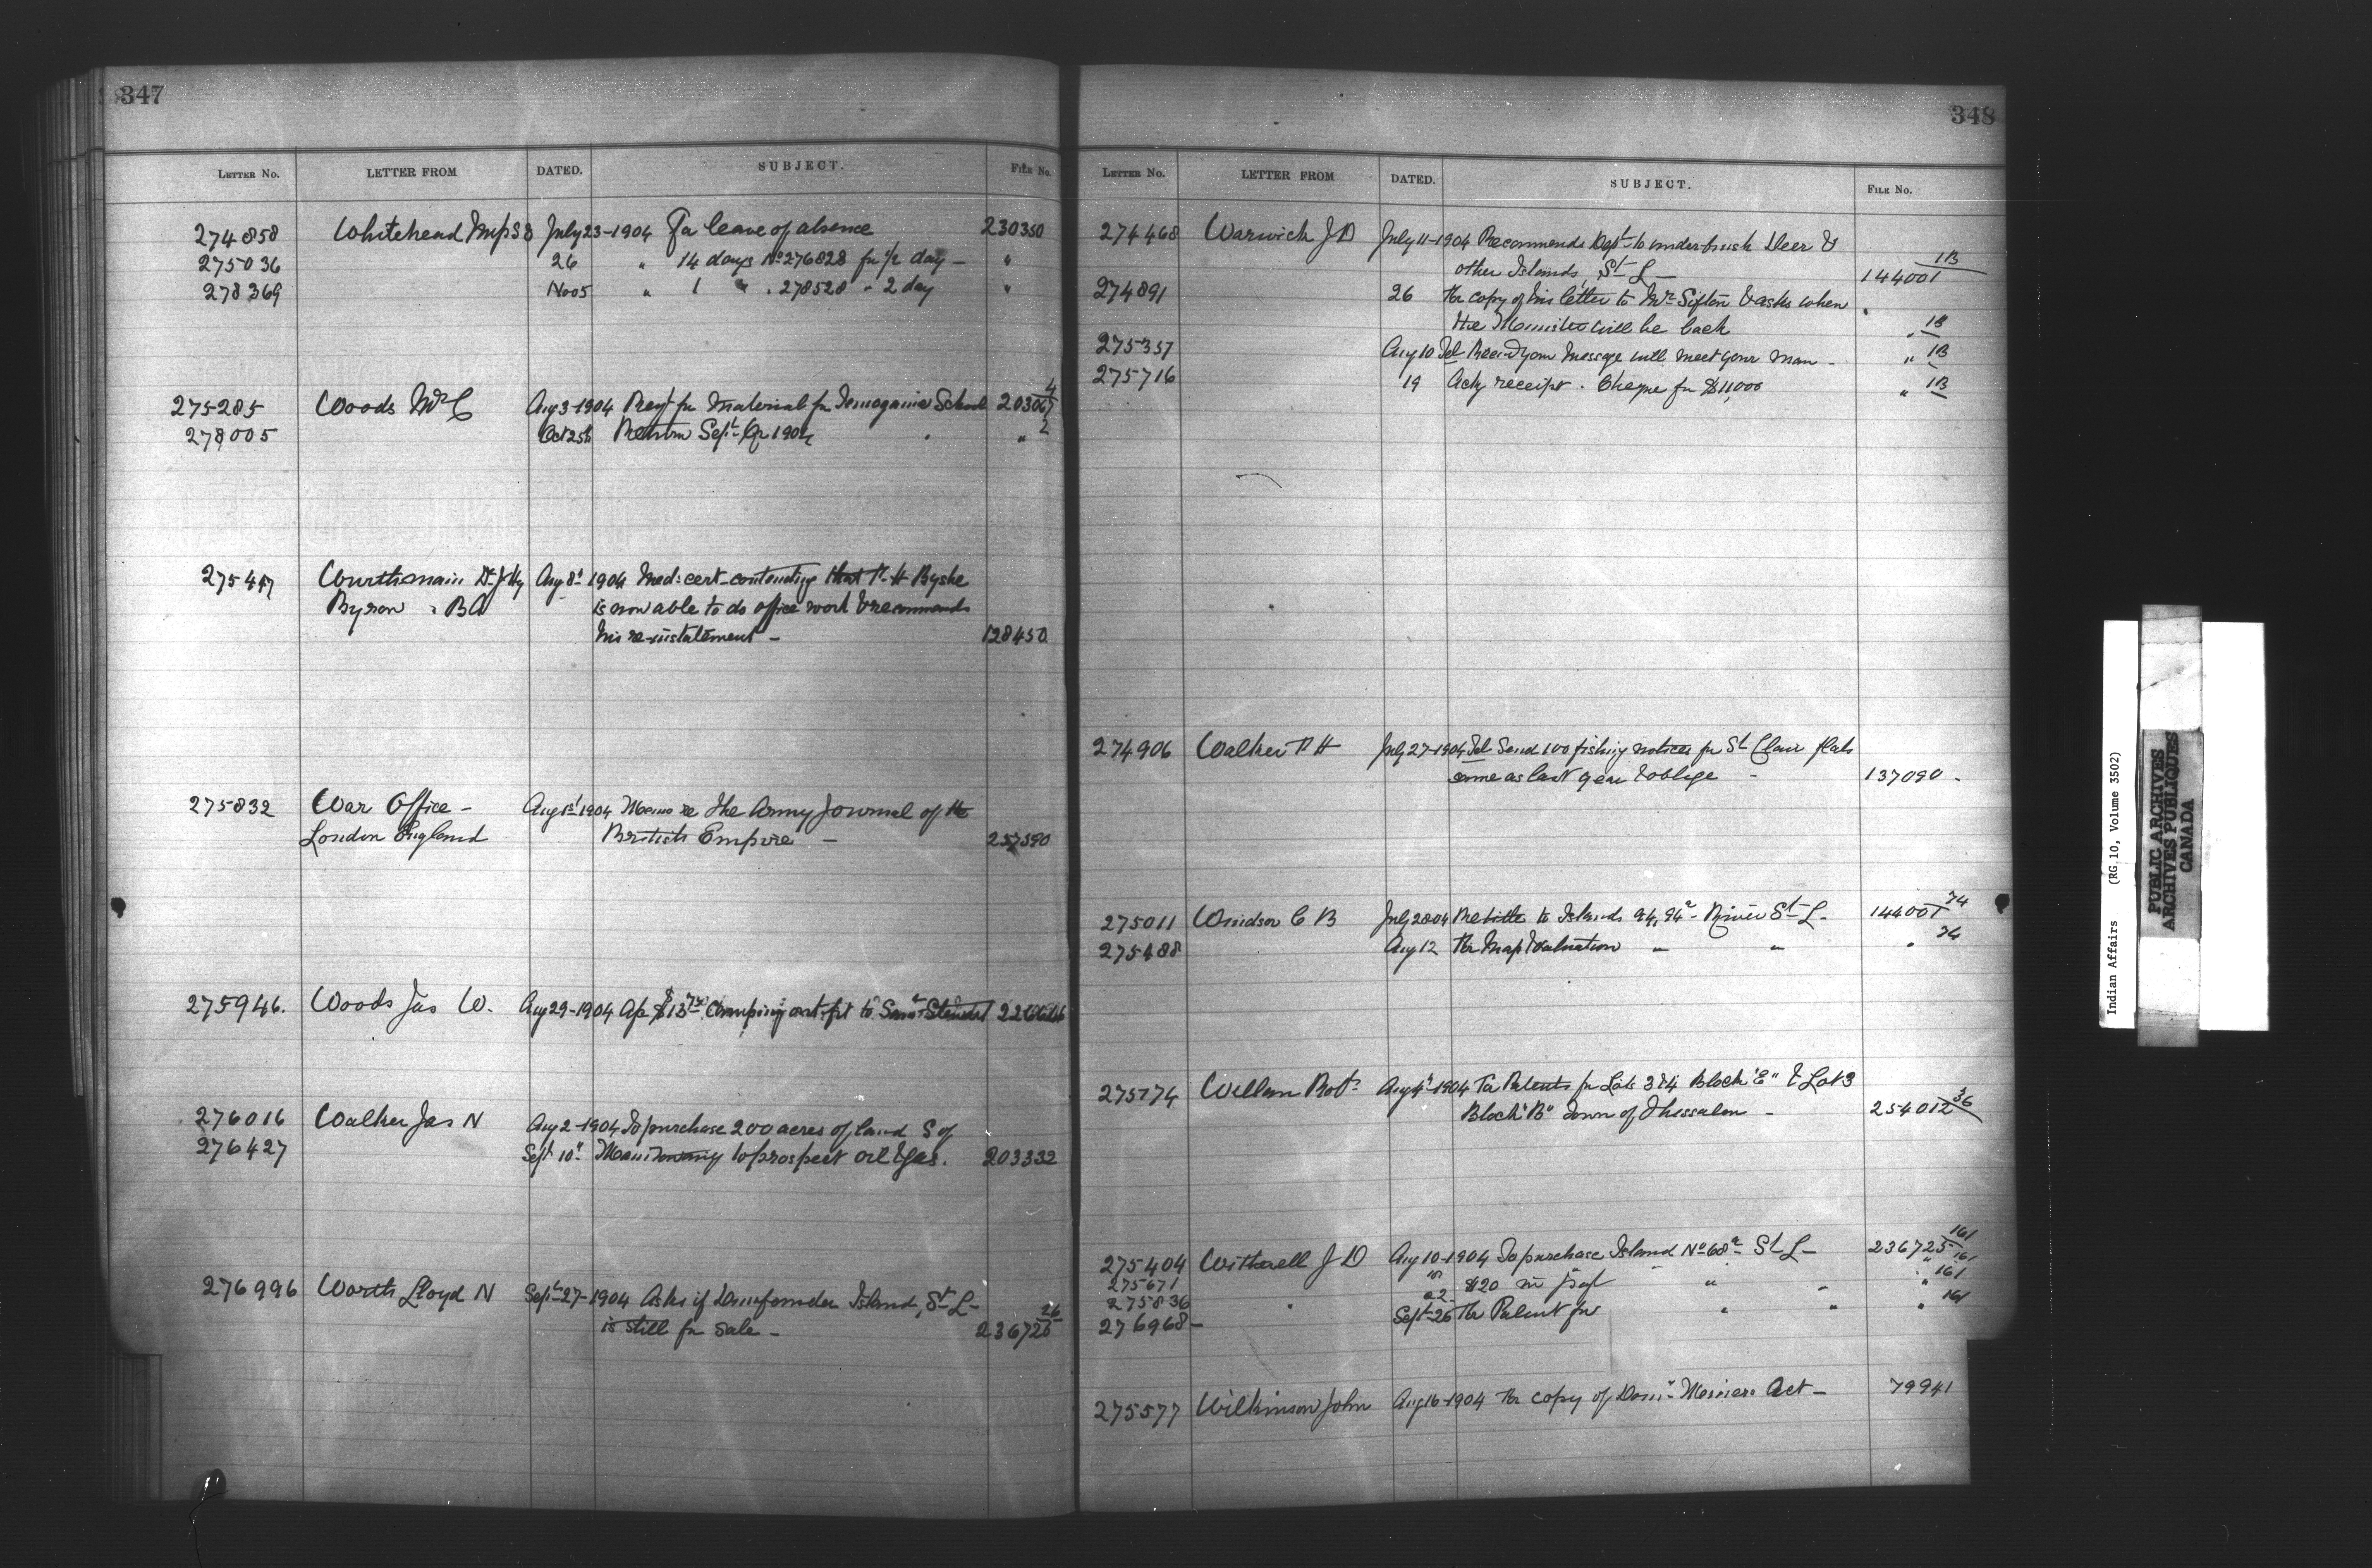 347
LETTER No. LETTER FROM DATED. SUBJECT. FILE No.
274858 Whitehead July 23-1904 For leave of absence 230350
275036 26 " 14 days No 276828 for 1/2 day - "
278369 Nov 5 " 1 " . 278528 " 2 day "
275285 Woods Aug 3-1904 Reqt for Material for Temogamie School 203067 4
278005 Oct 25th Return Sept Qr 1904 " 2
Aug 8th 1904 Med: cert. that R. H
Byron " BA is now able to do office work & recommends
his re-instatement - 128450
275832 War Office - Aug 1st 1904 Memo re The Army Journal of the
London England British Empire -
275946. Woods Jas W. Aug 29-1904 to Saml
276016 Walker Jas N Aug 2-1904 To purchase 200 acres of land S of
276427 Sept 10th to prospect oil & gas. 203332
276996 Worth Lloyd N Sept 27-1904 Asks if Island, St L-
is still for sale - 236725 26
348
LETTER No. LETTER FROM DATED. SUBJECT. FILE No.
274468 Warwick J D July 11-1904 Recommends Dept to underbrush Deer &
other Islands, St L - 144001 1B
274891 26 For copy of his letter to Mr Sifton & asks when
the Minister will be back " 1B
275357 Aug 10 Tel Rec'd your message will meet your man - " 1B
275716 19 Ack receipt . Cheque for $11,000 " 1B
274906 Walker R H July 27-1904 Tel Send 100 fishing notices for St Clair flats
same as last year & oblige - 137090 -
275011 Windsor C B July 28 04 Re title to Islands 94, 94a - River St L- 144001 74
275488 Aug 12 For Map & valuation " " " 74
275174 Robt Aug 4th-1904 For Patents for Lots 3 & 4 Block "E" & Lot 3
Block "B" Town of Thessalon - 254012 36
275404 Witherell J D Aug 10-1904 To purchase Island No 68a St L- 236725 161
275671 18 $20 in " " " 161
275836 22 " 161
276968- Sept 26 For Patent for " " " 161
275577 Wilkinson John Aug 16-1904 For copy of Domn Act - 79941
Indian Affairs (RG 10, Volume 3502)
PUBLIC ARCHIVES
ARCHIVES PUBLIQUES
CANADA